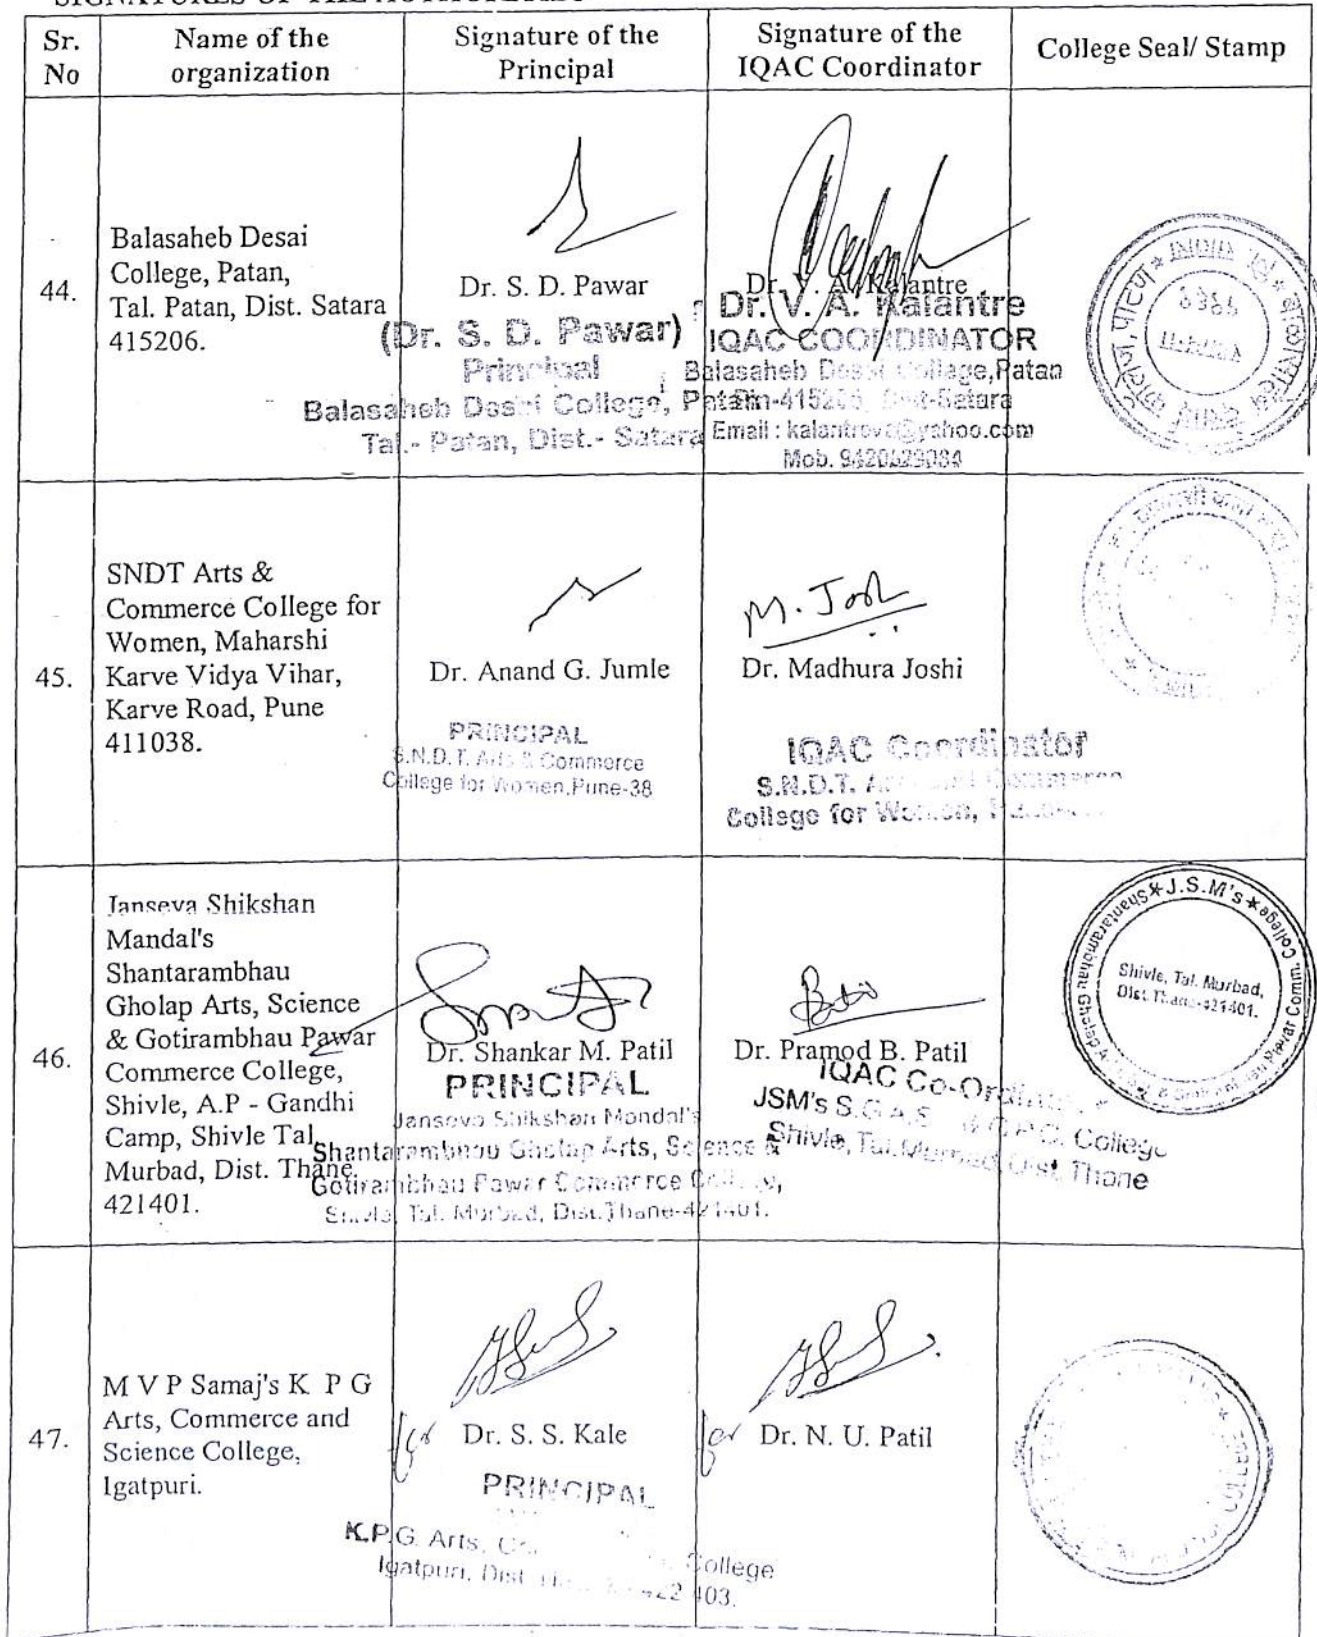 Sr.
No
Name of the
organization
Signature of the
Principal
Signature of the
IQAC Coordinator
College Seal/ Stamp
44.
Balasaheb Desai
College, Patan,
Tal. Patan, Dist. Satara
415206.
Dr. S. D. Pawar
(Dr. S. D. Pawar)
Principal
Balasaheb Desai College, Patan
Tal.- Patan, Dist.- Satara
Dr. V. A. Kalantre
Dr. V. A. Kalantre
IQAC COORDINATOR
Balasaheb Desai College, Patan
Dist-Satara
Email : kalantreva@yahoo.com
Mob.
45.
SNDT Arts &
Commerce College for
Women, Maharshi
Karve Vidya Vihar,
Karve Road, Pune
411038.
Dr. Anand G. Jumle
PRINCIPAL
S.N.D.T. Arts & Commerce
College for Women, Pune-38
M. Joshi
Dr. Madhura Joshi
IQAC Coordinator
S.N.D.T. Commerce
College for Women,
46.
Janseva Shikshan
Mandal's
Shantarambhau
Gholap Arts, Science
& Gotirambhau Pawar
Commerce College,
Shivle, A.P - Gandhi
Camp, Shivle Tal.
Murbad, Dist. Thane.
421401.
Dr. Shankar M. Patil
PRINCIPAL
Janseva Shikshan Mandal's
Shantarambhau Gholap Arts, Science &
Gotirambhau Pawar Commerce College,
Shivle, Tal. Murbad, Dist. Thane-421401.
Dr. Pramod B. Patil
IQAC Co-Ordinator
JSM's S.G.A.S. College
Shivle, Tal. Murbad, Dist. Thane
J.S.M's
Shantarambhau Gholap
Pawar Comm. College
Shivle, Tal. Murbad,
Dist. Thane-421401.
47.
M V P Samaj's K P G
Arts, Commerce and
Science College,
Igatpuri.
for Dr. S. S. Kale
PRINCIPAL
K.P.G. Arts, College
Igatpuri, Dist.
for Dr. N. U. Patil